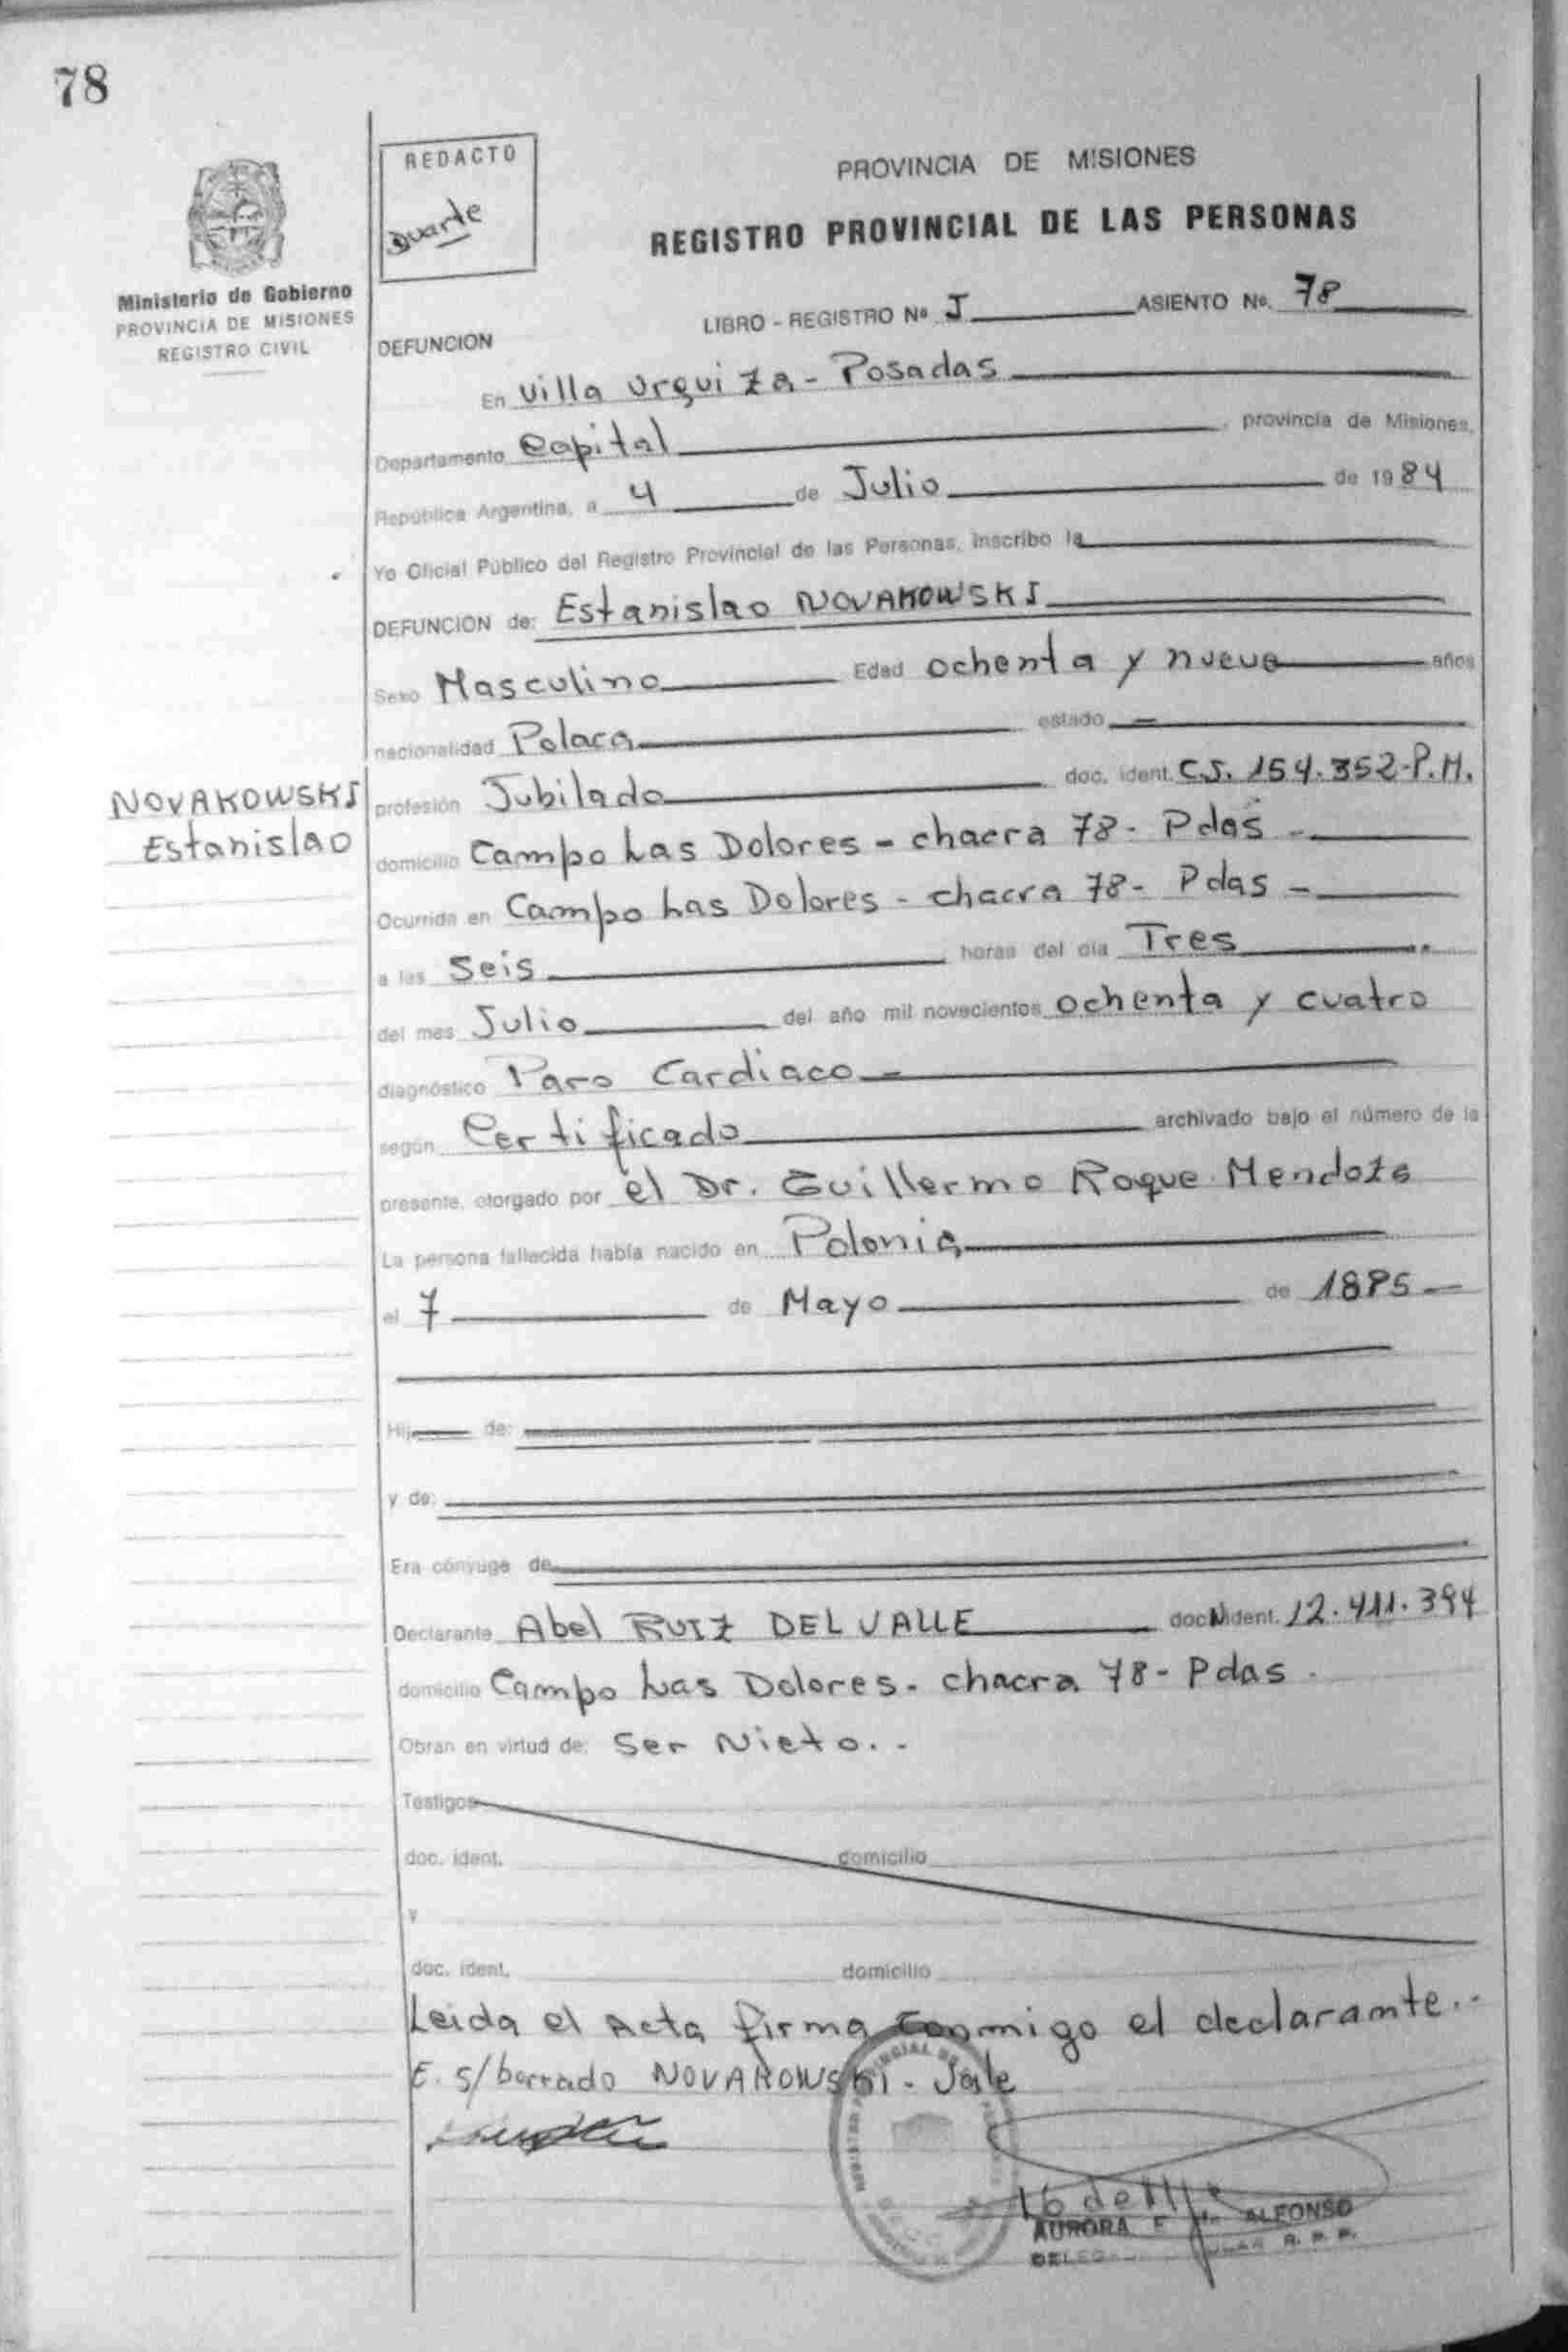 78
REDACTO
Duarte
Ministerio de Gobierno
PROVINCIA DE MISIONES
REGISTRO CIVIL
PROVINCIA DE MISIONES
REGISTRO PROVINCIAL DE LAS PERSONAS
LIBRO - REGISTRO Nº J ASIENTO Nº. 78
DEFUNCION
En Villa Urquiza - Posadas
Departamento Capital, provincia de Misiones,
República Argentina, a 4 de Julio de 1984
Yo Oficial Público del Registro Provincial de las Personas, inscribo la
DEFUNCION de: Estanislao NOVAKOWSKI
Sexo Masculino Edad ochenta y nueve años
nacionalidad Polaca estado -
NOVAKOWSKI
Estanislao
profesión Jubilado doc. ident. C.I. 154.352-P.M.
domicilio Campo Las Dolores - chacra 78 - Pdas -
Ocurrida en Campo Las Dolores - chacra 78 - Pdas -
a las Seis horas del día Tres
del mes Julio del año mil novecientos ochenta y cuatro
diagnóstico Paro Cardiaco -
según Certificado archivado bajo el número de la
presente, otorgado por el Dr. Guillermo Roque Mendoza
La persona fallecida había nacido en Polonia
el 7 de Mayo de 1895 -
Hij de:
y de:
Era cónyuge de
Declarante Abel RUIZ DEL VALLE doc. ident. 12.411.394
domicilio Campo Las Dolores - chacra 78 - Pdas.
Obran en virtud de: Ser Nieto. -
Testigos
doc. ident. domicilio
y
doc. ident. domicilio
Leida el Acta firma conmigo el declarante. -
E. s/borrado NOVAKOWSKI - Vale
AURORA ALFONSO
R. P. P.